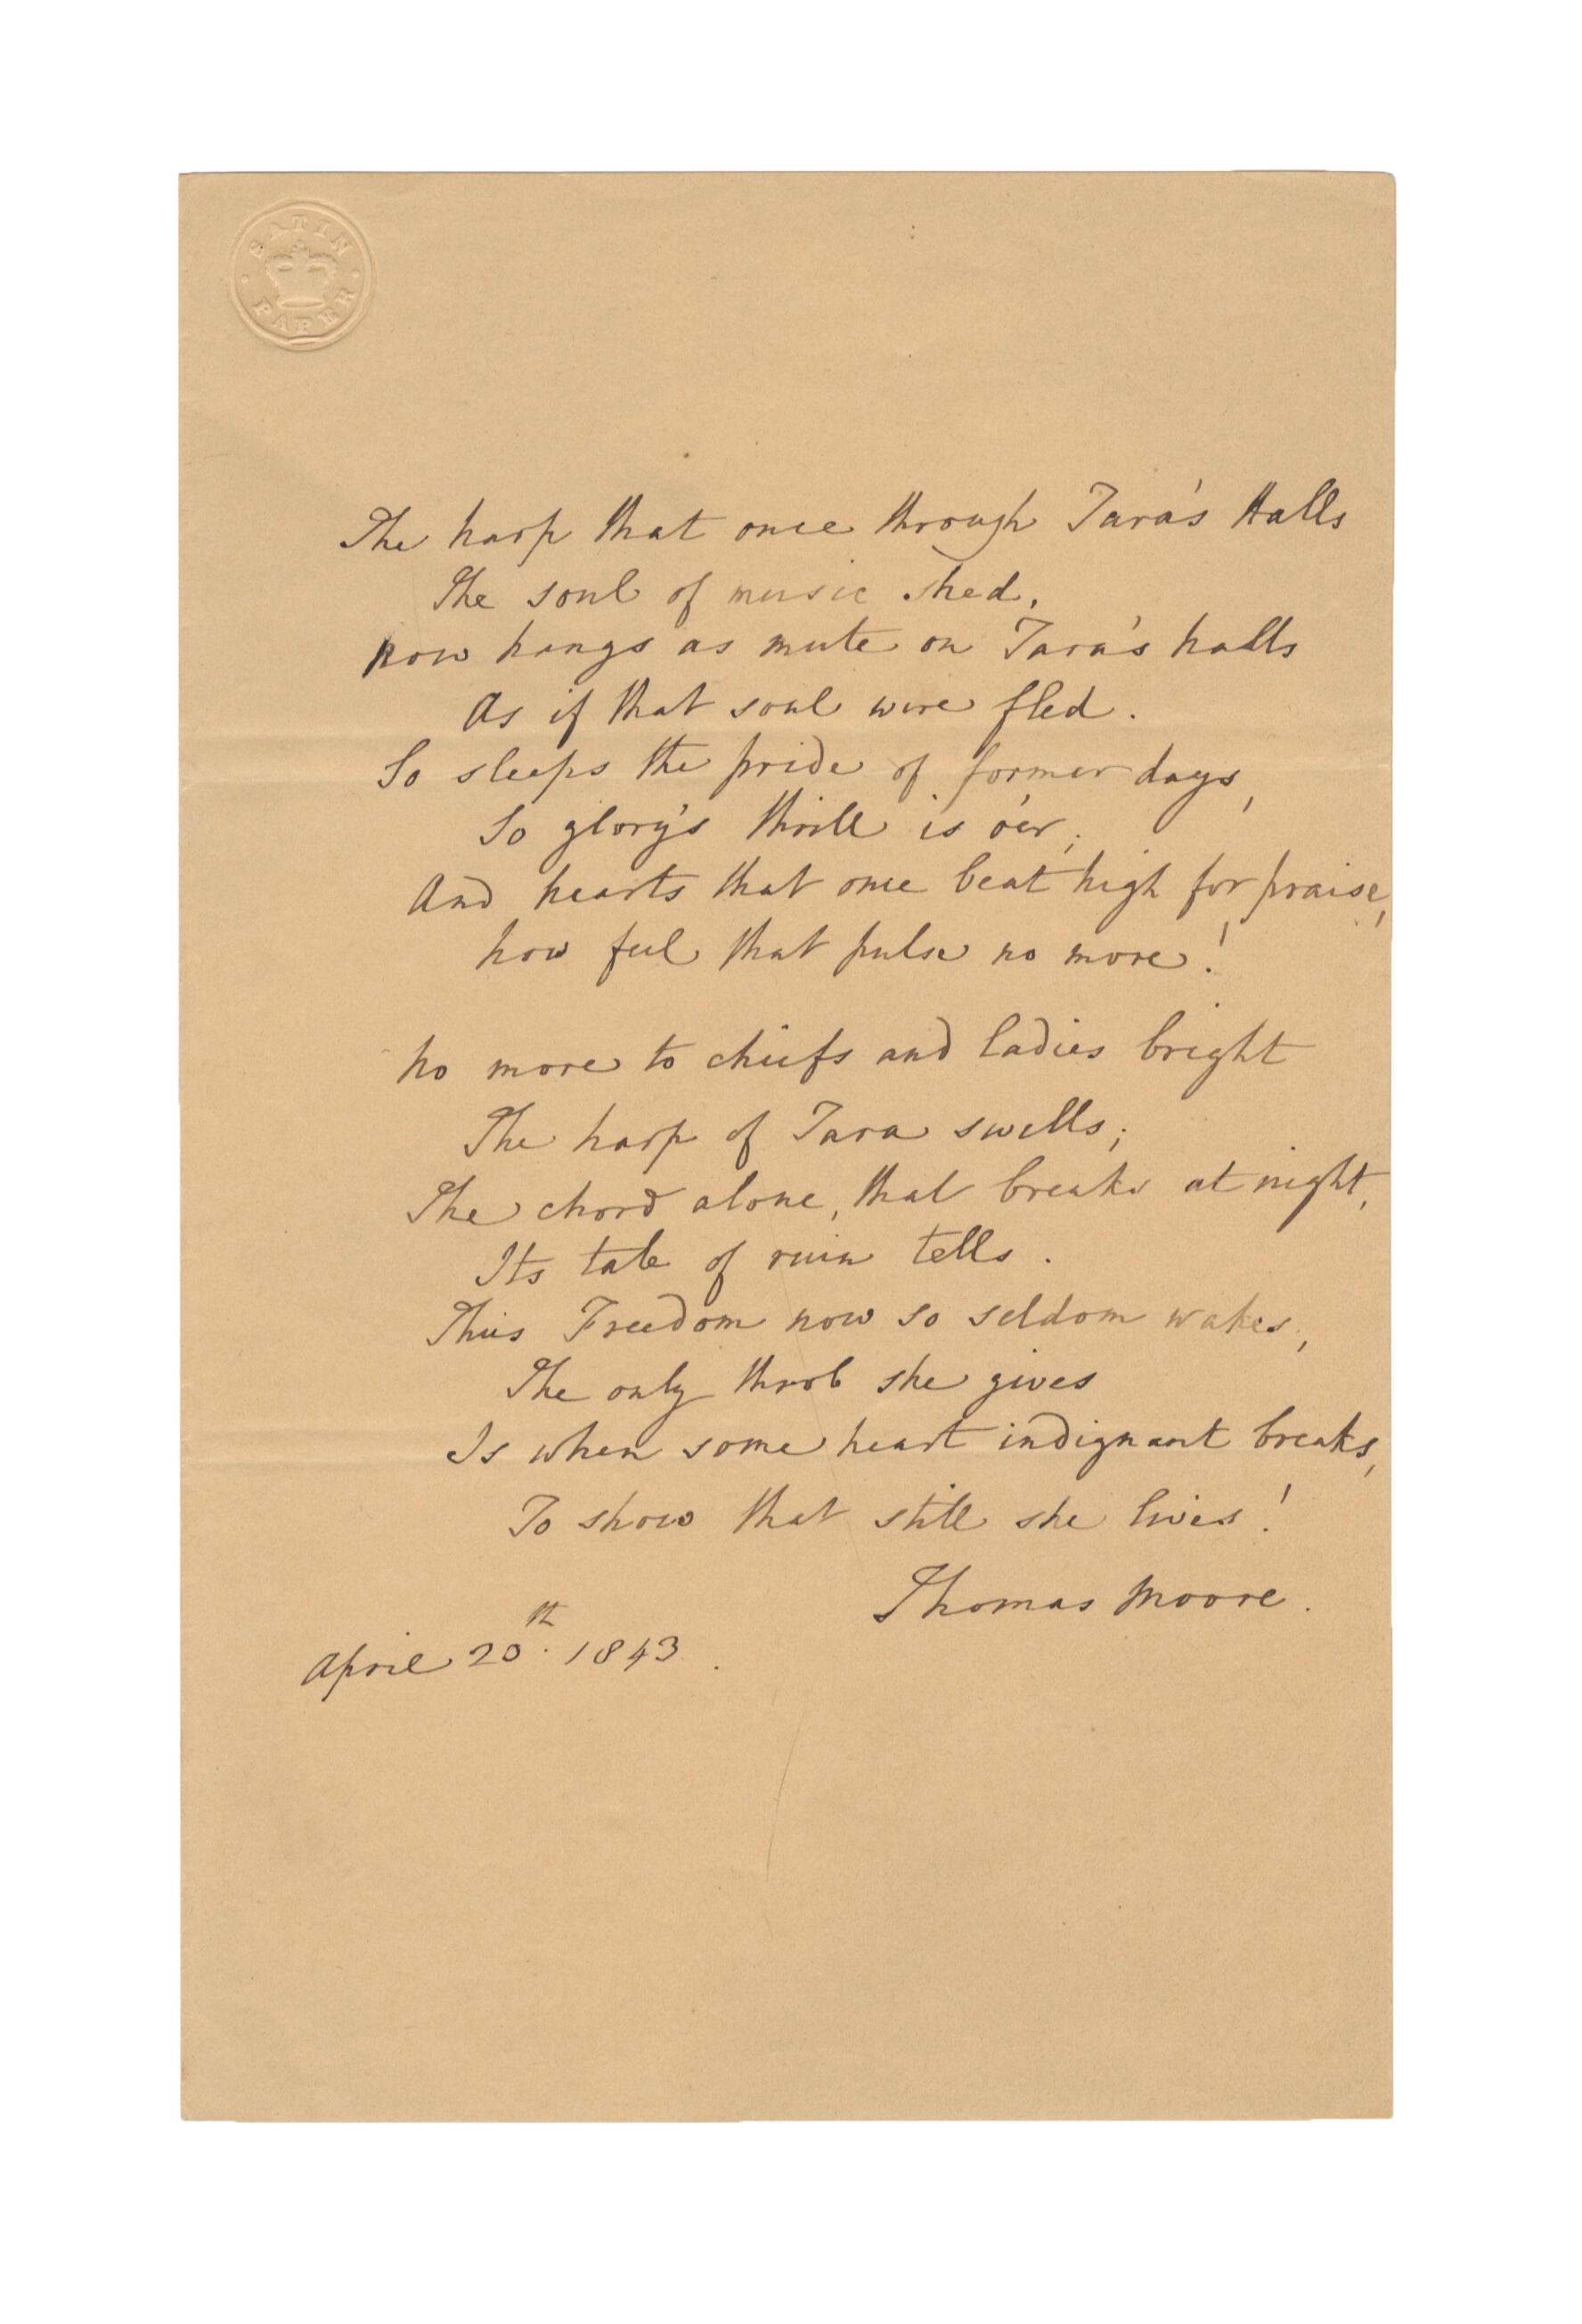 SATIN PAPER
The harp that once through Tara's Halls
The soul of music shed,
Now hangs as mute on Tara's halls
As if that soul were fled.
So sleeps the pride of former days,
So glory's thrill is o'er;
And hearts that once beat high for praise,
Now feel that pulse no more!
No more to chiefs and ladies bright
The harp of Tara swells;
The chord alone, that breaks at night,
Its tale of ruin tells.
Thus Freedom now so seldom wakes,
The only throb she gives
Is when some heart indignant breaks,
To show that still she lives!
Thomas Moore.
April 20th. 1843.